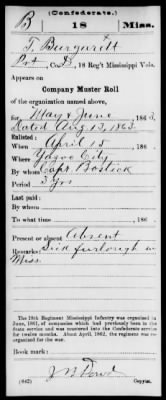 (Confederate.)
B 18 Miss.
T. Burgaritt
Pvt, Co. B, 18 Reg't Mississippi Vols.
Appears on
Company Muster Roll
of the organization named above,
for May & June, 1863.
Dated Aug 13, 1863.
Enlisted:
When April 15, 186
Where Yazoo City
By whom Capt Bostick
Period 3 Yrs
Last paid:
By whom
To what time , 186
Present or absent Absent
Remarks: Sick furlough in
Miss.
The 18th Regiment Mississippi Infantry was organized in
June, 1861, of companies which had previously been in the
State service and was mustered into the Confederate service
for twelve months. About April, 1862, the regiment was re-
organized for the war.
Book mark:
(642) Copyist.